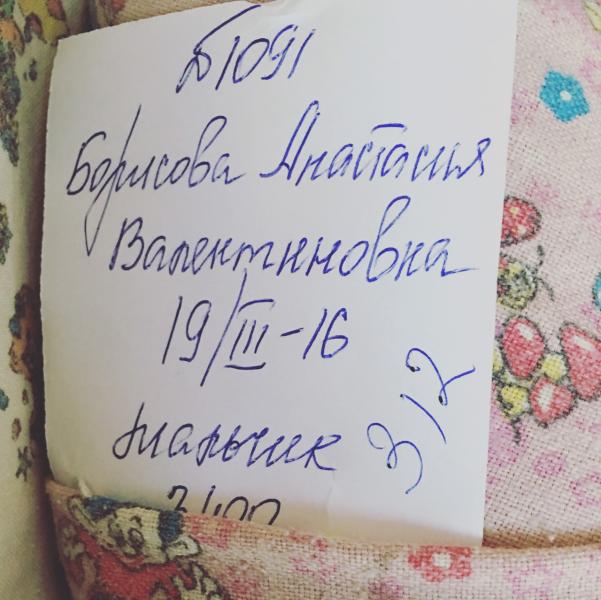 Б1091
Борисова Анастасия
Валентиновна
19/III-16
мальчик
3/2
3400